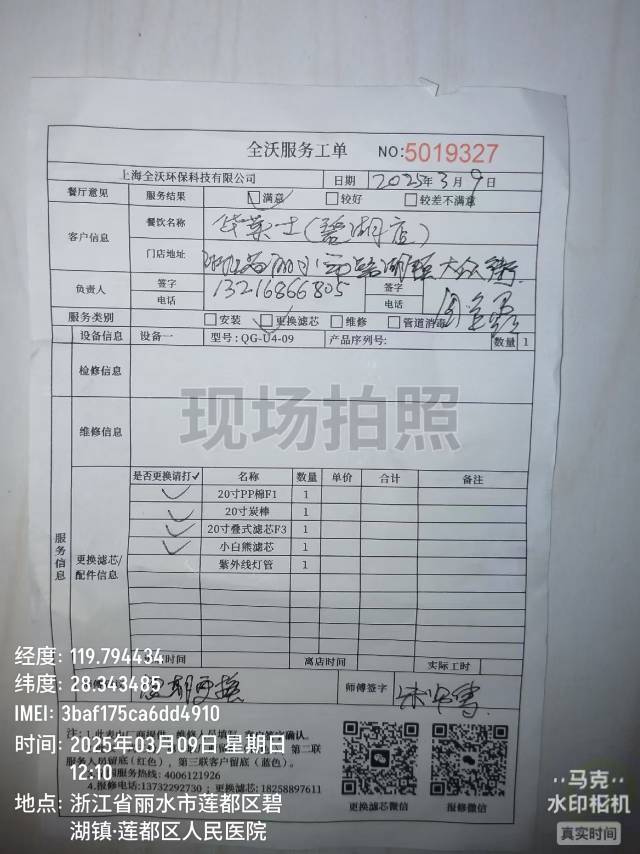 全沃服务工单 NO:5019327
上海全沃环保科技有限公司 日期 2025年3月9日
餐厅意见 服务结果 满意 较好 较差不满意
客户信息 餐饮名称 华莱士(碧湖店)
门店地址 碧湖镇大众街
负责人 签字 电话 13216866805 签字 电话
服务类别 安装 更换滤芯 维修 管道消毒
设备信息 设备一 型号: QG-U4-09 产品序列号: 数量 1
检修信息
现场拍照
维修信息
服务信息
更换滤芯/配件信息
是否更换请打✓ 名称 数量 单价 合计 备注
✓ 20寸PP棉F1 1
✓ 20寸炭棒 1
✓ 20寸叠式滤芯F3 1
✓ 小白熊滤芯 1
紫外线灯管 1
时间 离店时间 实际工时
更换 师傅签字
经度: 119.794434
纬度: 28.343485
IMEI: 3baf175ca6dd4910
时间: 2025年03月09日 星期日
12:10
地点: 浙江省丽水市莲都区碧
湖镇·莲都区人民医院
第二联
服务人员留底(红色), 第三联客户留底(蓝色)。
服务热线: 4006121926
4.报修电话: 13732292730; 更换滤芯: 18258897611
更换滤芯微信 报修微信
马克
水印相机
真实时间